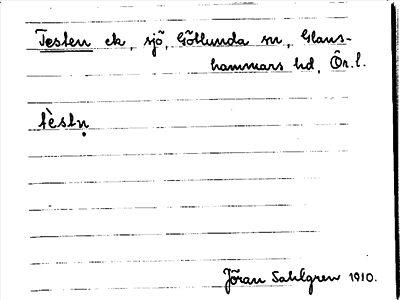 Testen ek, sjö, Götlunda sn, Glans-
hammars hd, Ör. l.
tèstṇ
Jöran Sahlgren 1910.